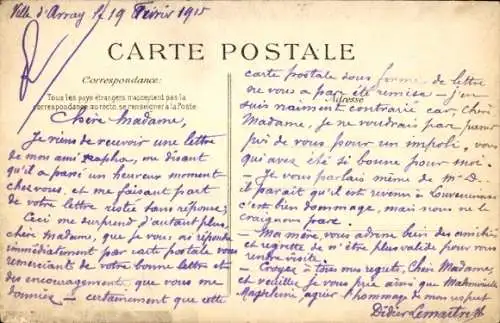 Ville d'Avray le 19 Février 1915
CARTE POSTALE
Correspondance:
Tous les pays étrangers n'acceptent pas la
correspondance au recto, se renseigner à la Poste
Adresse
Chère Madame,
Je viens de recevoir une lettre
de mon ami Rapha, me disant
qu'il a passé un heureux moment
chez vous, et me faisant part
de votre lettre restée sans réponse;
Ceci me surprend d'autant plus,
chère Madame, que je vous ai répondu
immédiatement par carte postale vous
remerciant de votre bonne lettre et
des encouragements que vous me
donniez — certainement que cette
carte postale sous forme de lettre
ne vous a pas été remise — j'en
suis vraiment contrarié car, Chère
Madame, je ne voudrais pas passer
près de vous pour un impoli, vous
qui avez été si bonne pour moi.
— Je vous parlais même de Mr D.
il paraît qu'il est revenu à Louveciennes
c'est bien dommage, mais nous ne le
craignons pas.
— Ma mère vous adresse bien des amitiés
et regrette de n'être plus valide pour vous
rendre visite.
— Croyez à tous mes regrets, Chère Madame,
et veuillez je vous prie ainsi que Mademoiselle
Magdeleine agréer l'hommage de mon respect
Didier Lemaître